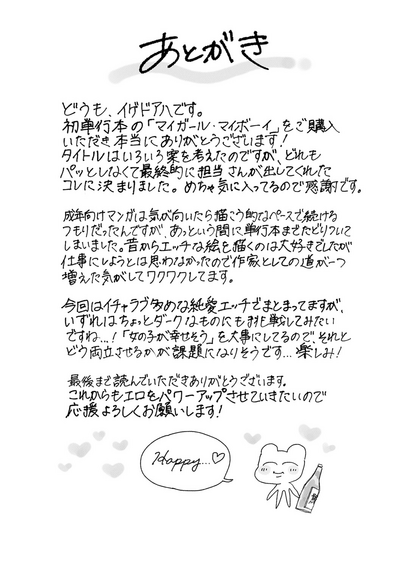 あとがき
どうも、イゲドアハです。
初単行本の「マイガール・マイボーイ」をご購入
いただき本当にありがとうございます!
タイトルはいろいろ案を考えたのですが、どれも
パッとしなくて最終的に担当さんが出してくれた
コレに決まりました。めちゃ気に入ってるので感謝です。
成年向けマンガは気が向いたら描こう的なペースで続ける
つもりだったんですが、あっという間に単行本までたどりついて
しまいました。昔からエッチな絵を描くのは大好きでしたが
仕事にしようとは思わなかったので作家としての道が一つ
増えた気がしてワクワクしてます。
今回はイチャラブ多めな純愛エッチでまとまってますが、
いずれはちょっとダークなものにも挑戦してみたい
ですね…!「女の子が幸せそう」を大事にしてるので、それと
どう両立させるかが課題になりそうです…楽しみ!
最後まで読んでいただきありがとうございます。
これからもエロをパワーアップさせていきたいので
応援よろしくお願いします!
Happy…♡